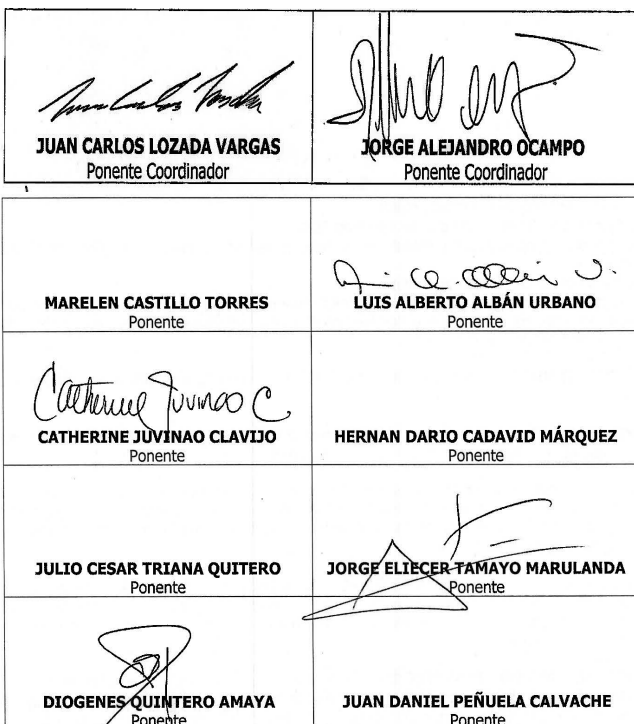 JUAN CARLOS LOZADA VARGAS
Ponente Coordinador
JORGE ALEJANDRO OCAMPO
Ponente Coordinador
MARELEN CASTILLO TORRES
Ponente
LUIS ALBERTO ALBÁN URBANO
Ponente
Catherine Juvinao C.
CATHERINE JUVINAO CLAVIJO
Ponente
HERNAN DARIO CADAVID MÁRQUEZ
Ponente
JULIO CESAR TRIANA QUITERO
Ponente
JORGE ELIECER TAMAYO MARULANDA
Ponente
DIOGENES QUINTERO AMAYA
Ponente
JUAN DANIEL PEÑUELA CALVACHE
Ponente